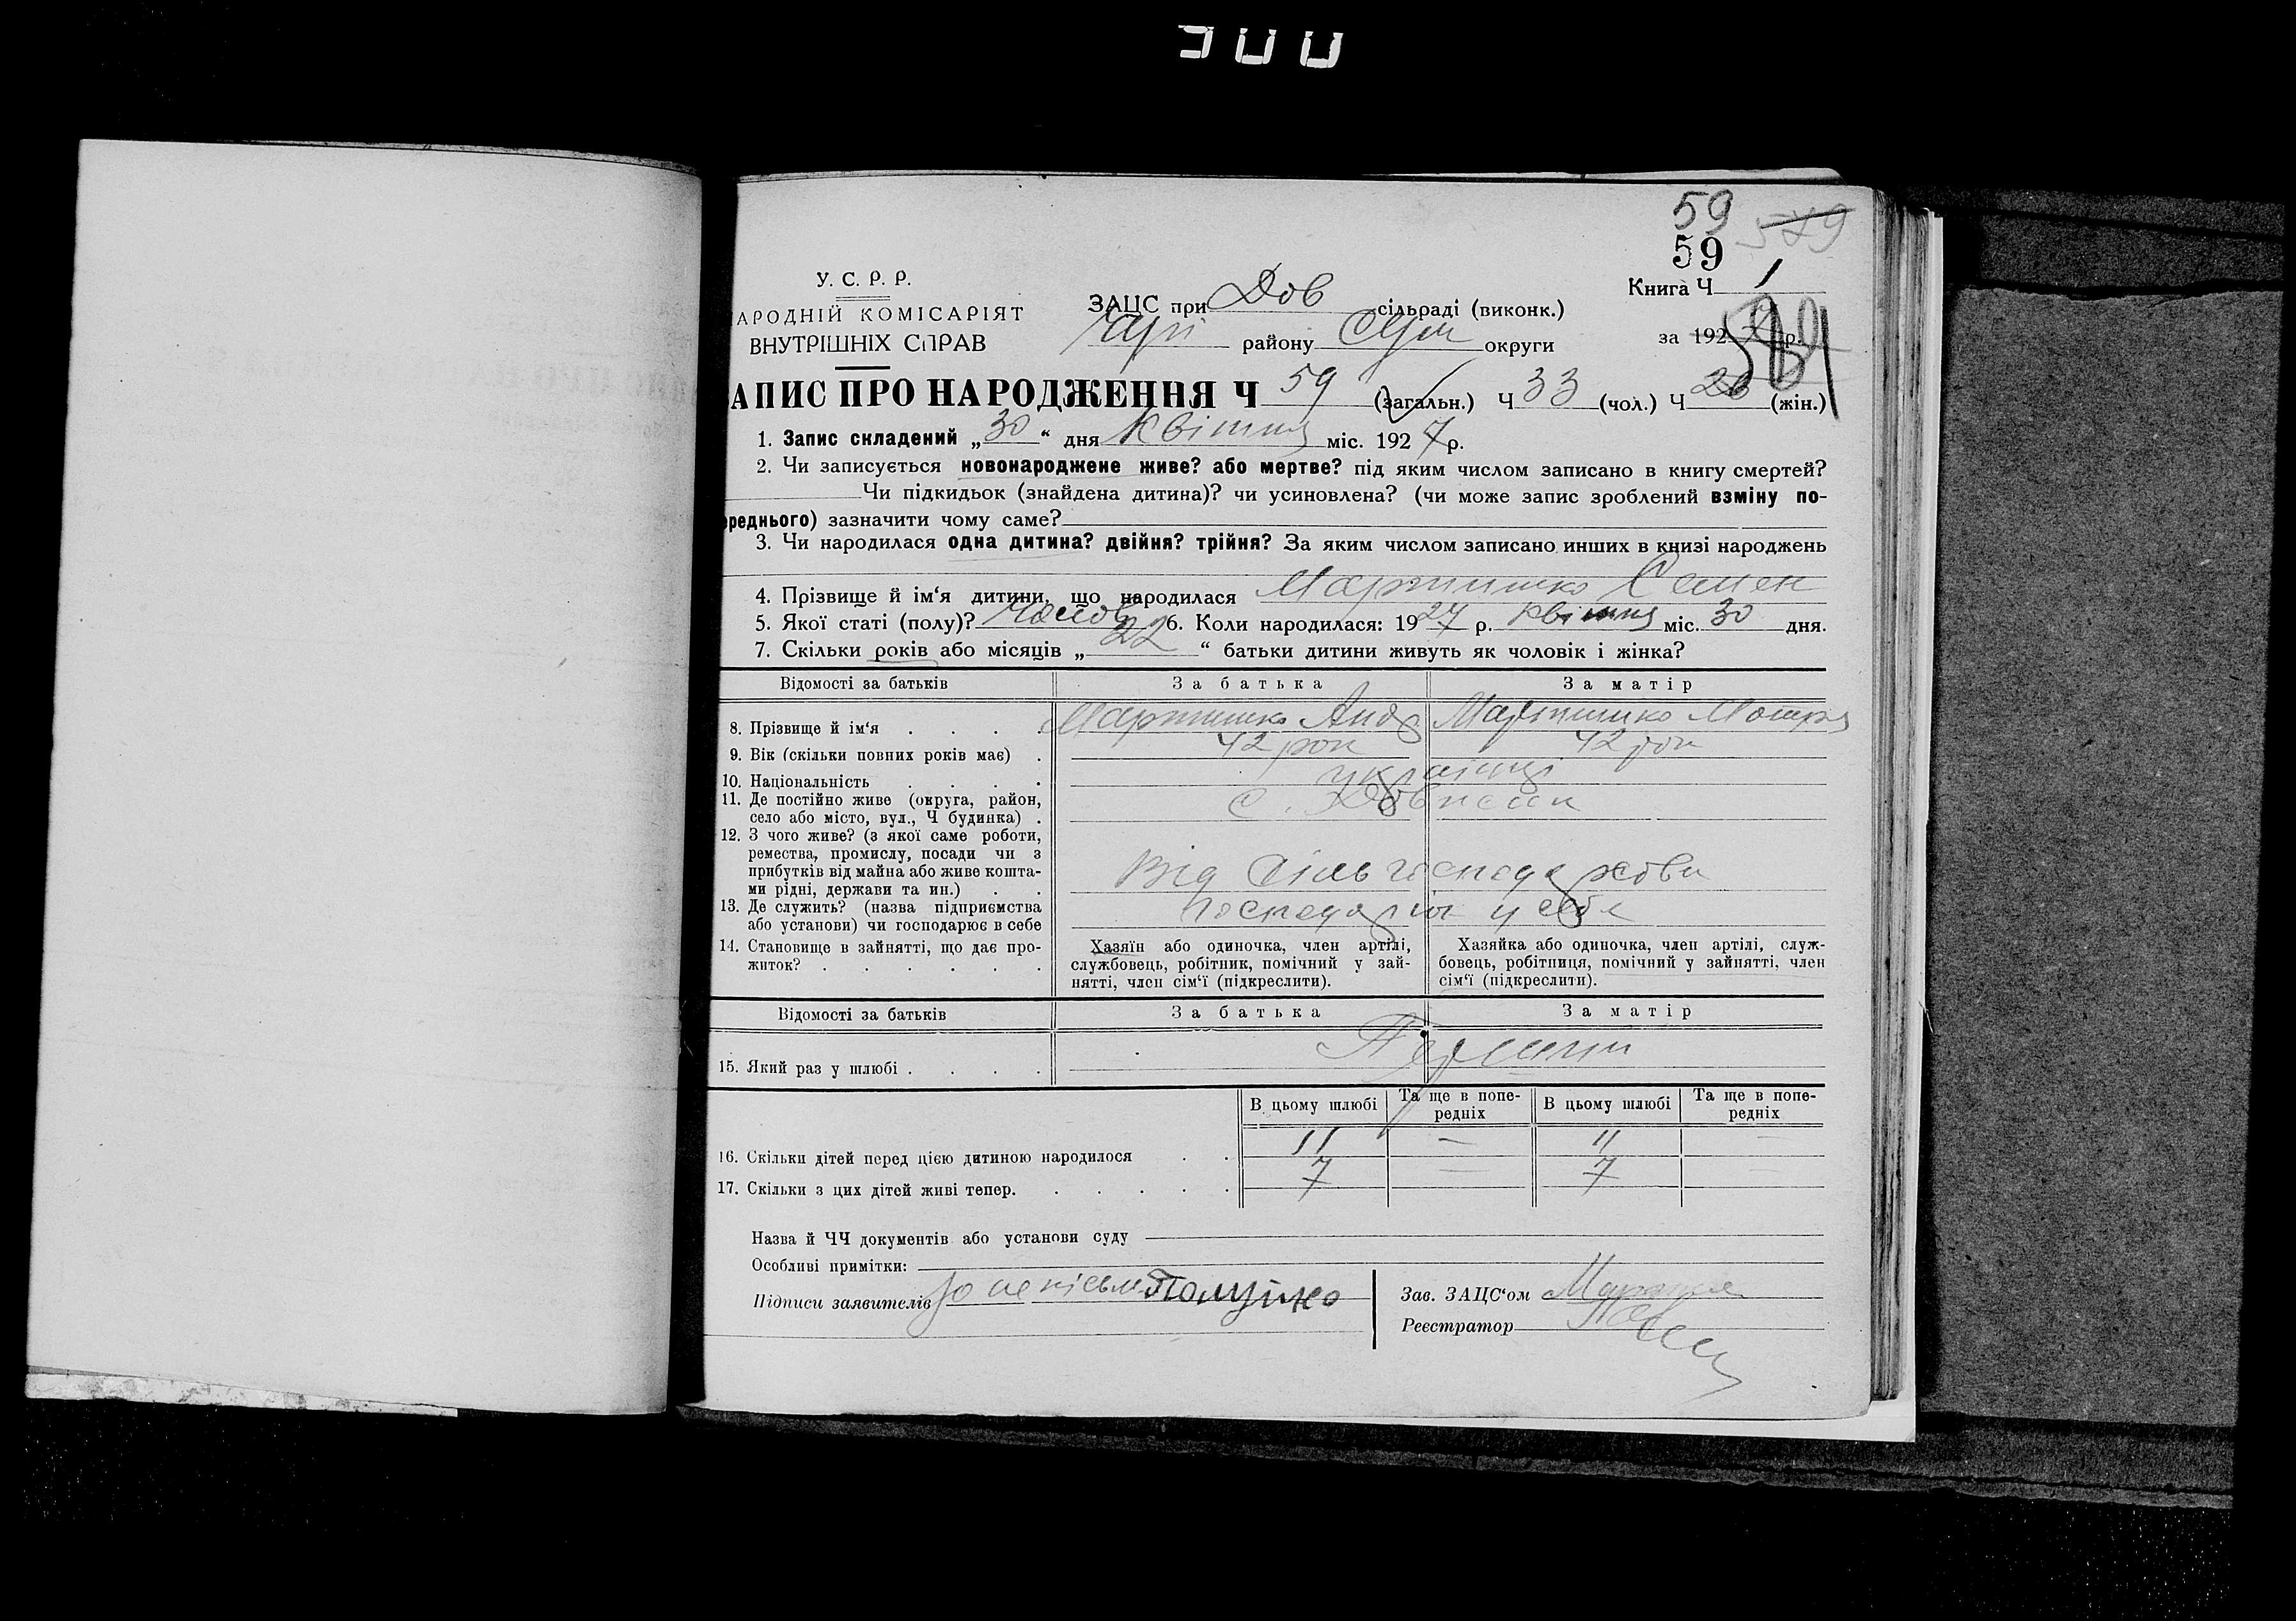 300
59 579
59
У. С. Р. Р.
АРОДНІЙ КОМІСАРІЯТ
ВНУТРІШНІХ СПРАВ
ЗАЦС при Дов сільраді (виконк.)
району Сум округи
Книга Ч 1
за 1927 р.
АПИС ПРО НАРОДЖЕННЯ Ч 59 (загальн.) Ч 33 (чол.) Ч 26 (жін.)
1. Запис складений „30“ дня Квітня міс. 1927 р.
2. Чи записується новонароджене живе? або мертве? під яким числом записано в книгу смертей?
Чи підкидьок (знайдена дитина)? чи усиновлена? (чи може запис зроблений взміну по-
ереднього) зазначити чому саме?
3. Чи народилася одна дитина? двійня? трійня? За яким числом записано инших в книзі народжень
4. Прізвище й ім‘я дитини, що народилася Мартишко Семен
5. Якої статі (полу)? Чолов 6. Коли народилася: 1927 р. квітня міс. 30 дня.
7. Скільки років або місяців „22“ батьки дитини живуть як чоловік і жінка?
Відомості за батьків За батька За матір
8. Прізвище й ім‘я . . . . Мартишко Анд Мартишко Мотря
9. Вік (скільки повних років має) . 42 рок 42 рок
10. Національність . . . . українці
11. Де постійно живе (округа, район,
село або місто, вул., Ч будинка) . с.
12. З чого живе? (з якої саме роботи,
ремества, промислу, посади чи з
прибутків від майна або живе кошта-
ми рідні, держави та ин.) . . Від сільгосподарства
13. Де служить? (назва підприємства
або установи) чи господарює в себе у себе
14. Становище в зайнятті, що дає про-
житок? . . . . . .
Хазяїн або одиночка, член артілі,
службовець, робітник, помічний у зай-
нятті, член сім‘ї (підкреслити).
Хазяйка або одиночка, член артілі, служ-
бовець, робітниця, помічний у зайнятті, член
сім‘ї (підкреслити).
Відомості за батьків За батька За матір
15. Який раз у шлюбі . . . . Перший
В цьому шлюбі Та ще в попе-редніх В цьому шлюбі Та ще в попе-редніх
16. Скільки дітей перед цією дитиною народилося . . 11 — 11 —
17. Скільки з цих дітей живі тепер. . . . . . 7 — 7 —
Назва й ЧЧ документів або установи суду
Особливі примітки:
Підписи заявителів за непісьм
Зав. ЗАЦС‘ом
Реєстратор